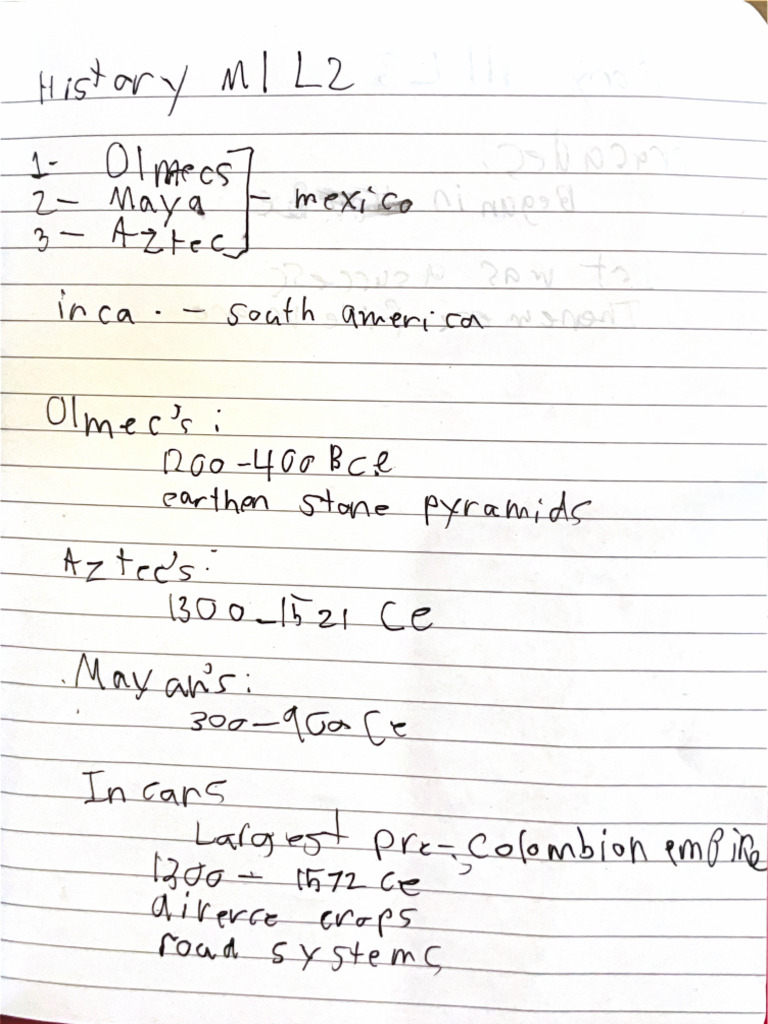 History M1 L2
1- Olmecs
2- Maya - mexico
3- Aztec
inca. - south america
Olmec's:
1200-400 Bce
earthen stone pyramids
Aztec's:
1300-1521 Ce
Mayan's:
300-900 Ce
Incans
Largest pre-colombion empire
1300-1572 ce
diverce crops
road systems